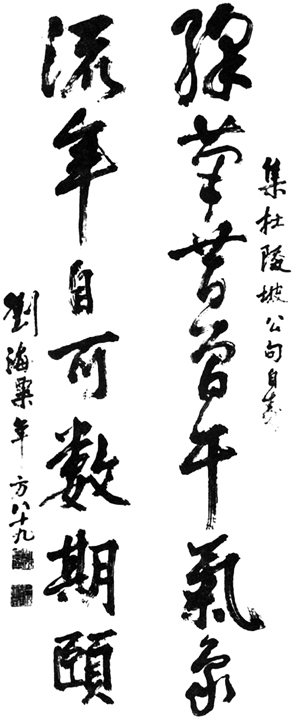 集杜陵坡公句自壽
綵筆昔曾干氣象
流年自可數期頤
劉海粟年方八十九